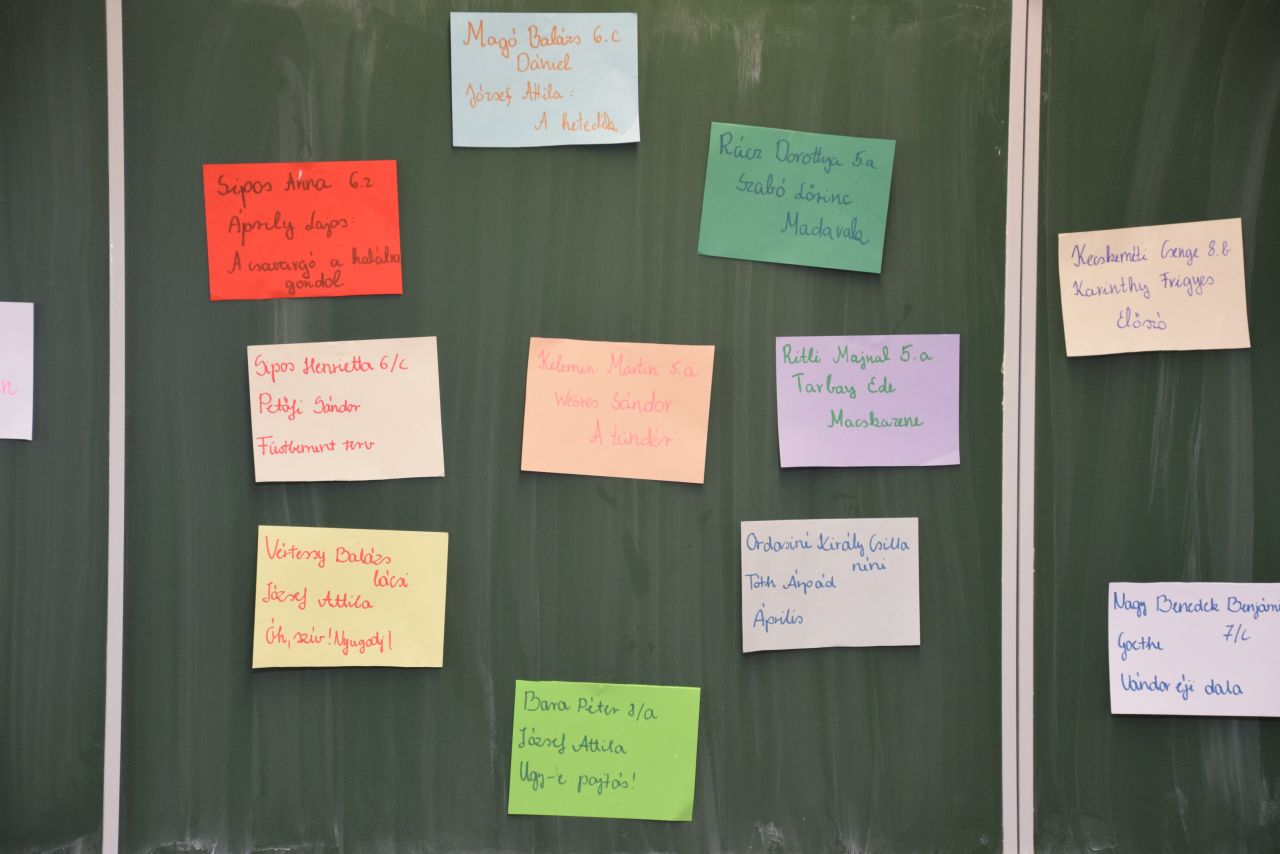 Magó Balázs 6.c
Dániel
József Attila:
A hetedik
Sipos Anna 6.z
Áprily Lajos:
A csavargó a halálra
gondol
Rácz Dorottya 5.a
Szabó Lőrinc
Madavala
Kecskeméti Csenge 8.b
Karinthy Frigyes
Előszó
Sipos Henrietta 6/c
Petőfi Sándor
Füstbement terv
Kelemen Martin 5.a
Weöres Sándor
A tündér
Ritli Majnal 5.a
Tarbay Ede
Macskazene
Vértessy Balázs
bácsi
József Attila
Óh, szív! Nyugodj!
Ordasiné Király Csilla
néni
Tóth Árpád
Április
Nagy Benedek Benjámi
7/c
Goethe
Vándor éji dala
Bara Péter 8/a
József Attila
Ugy-e pajtás!